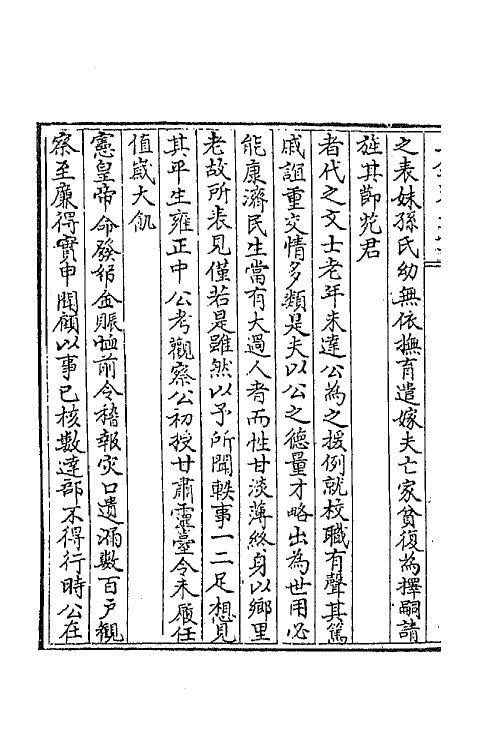 之表妹孫氏幼無依撫育遣嫁夫亡家貧復為擇嗣請
旌其節苑君
者代之文士老年未達公為之援例就校職有聲其篤
戚誼重交情多類是夫以公之德量才略出為世用必
能康濟民生當有大過人者而性甘淡薄終身以鄉里
老故所表見僅若是雖然以予所聞軼事一二足想見
其平生雍正中公考觀察公初授甘肅靈臺令未履任
值歲大飢
憲皇帝命發帑金賑恤前令稽報災口遺漏數百戶觀
察至廉得實申聞顧以事已核數達部不得行時公在